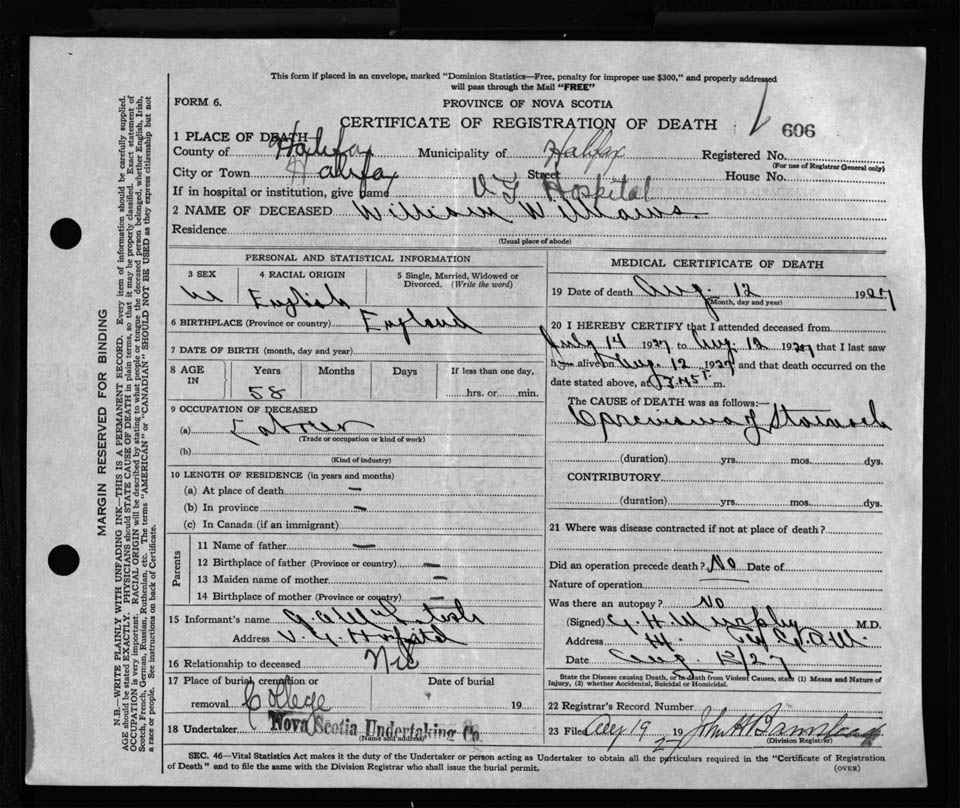 This form if placed in an envelope, marked "Dominion Statistics—Free, penalty for improper use $300," and properly addressed
will pass through the Mail "FREE"
FORM 6.
PROVINCE OF NOVA SCOTIA
CERTIFICATE OF REGISTRATION OF DEATH
606
1 PLACE OF DEATH
County of Halifax Municipality of Halifax Registered No.
(For use of Registrar General only)
City or Town Halifax Street House No.
If in hospital or institution, give name V G Hospital
2 NAME OF DECEASED William Williams.
Residence
(Usual place of abode)
PERSONAL AND STATISTICAL INFORMATION
3 SEX 4 RACIAL ORIGIN 5 Single, Married, Widowed or Divorced. (Write the word)
M English
6 BIRTHPLACE (Province or country) England
7 DATE OF BIRTH (month, day and year)
8 AGE IN Years Months Days If less than one day,
58 hrs. or min.
9 OCCUPATION OF DECEASED
(a) Laborer
(Trade or occupation or kind of work)
(b)
(Kind of industry)
10 LENGTH OF RESIDENCE (in years and months)
(a) At place of death —
(b) In province —
(c) In Canada (if an immigrant)
Parents
11 Name of father —
12 Birthplace of father (Province or country) —
13 Maiden name of mother —
14 Birthplace of mother (Province or country) —
15 Informant's name
Address V. G. Hospital
16 Relationship to deceased Nil
17 Place of burial, cremation or removal College Date of burial 19
18 Undertaker Nova Scotia Undertaking Co
(Name and address)
MEDICAL CERTIFICATE OF DEATH
19 Date of death Aug. 12 1927
(Month, day and year)
20 I HEREBY CERTIFY that I attended deceased from
July 14 1927 to Aug. 12 1927 that I last saw
him alive on Aug. 12 1927 and that death occurred on the
date stated above, at m.
The CAUSE OF DEATH was as follows:—
of Stomach
(duration) yrs. mos. dys.
CONTRIBUTORY
(duration) yrs. mos. dys.
21 Where was disease contracted if not at place of death?
Did an operation precede death? No Date of
Nature of operation
Was there an autopsy? No
(Signed) G. H. Murphy M.D.
Address
Date Aug 12/27
State the Disease causing Death, or in death from Violent Causes, state (1) Means and Nature of
Injury, (2) whether Accidental, Suicidal or Homicidal.
22 Registrar's Record Number
23 Filed Aug 19 1927 John H Barnstead
(Division Registrar)
SEC. 46—Vital Statistics Act makes it the duty of the Undertaker or person acting as Undertaker to obtain all the particulars required in the "Certificate of Registration
of Death" and to file the same with the Division Registrar who shall issue the burial permit. (OVER)
MARGIN RESERVED FOR BINDING
N.B.—WRITE PLAINLY WITH UNFADING INK—THIS IS A PERMANENT RECORD. Every item of information should be carefully supplied.
AGE should be stated EXACTLY. PHYSICIANS should STATE CAUSE OF DEATH in plain terms, so that it may be properly classified. Exact statement of
OCCUPATION is very important. RACIAL ORIGIN will be described by stating to what people or tongue the deceased person belonged, whether English, Irish,
Scotch, French, German, Russian, Ruthenian, etc. The terms "AMERICAN" or "CANADIAN" SHOULD NOT BE USED as they express citizenship but not
a race or people. See instructions on back of Certificate.